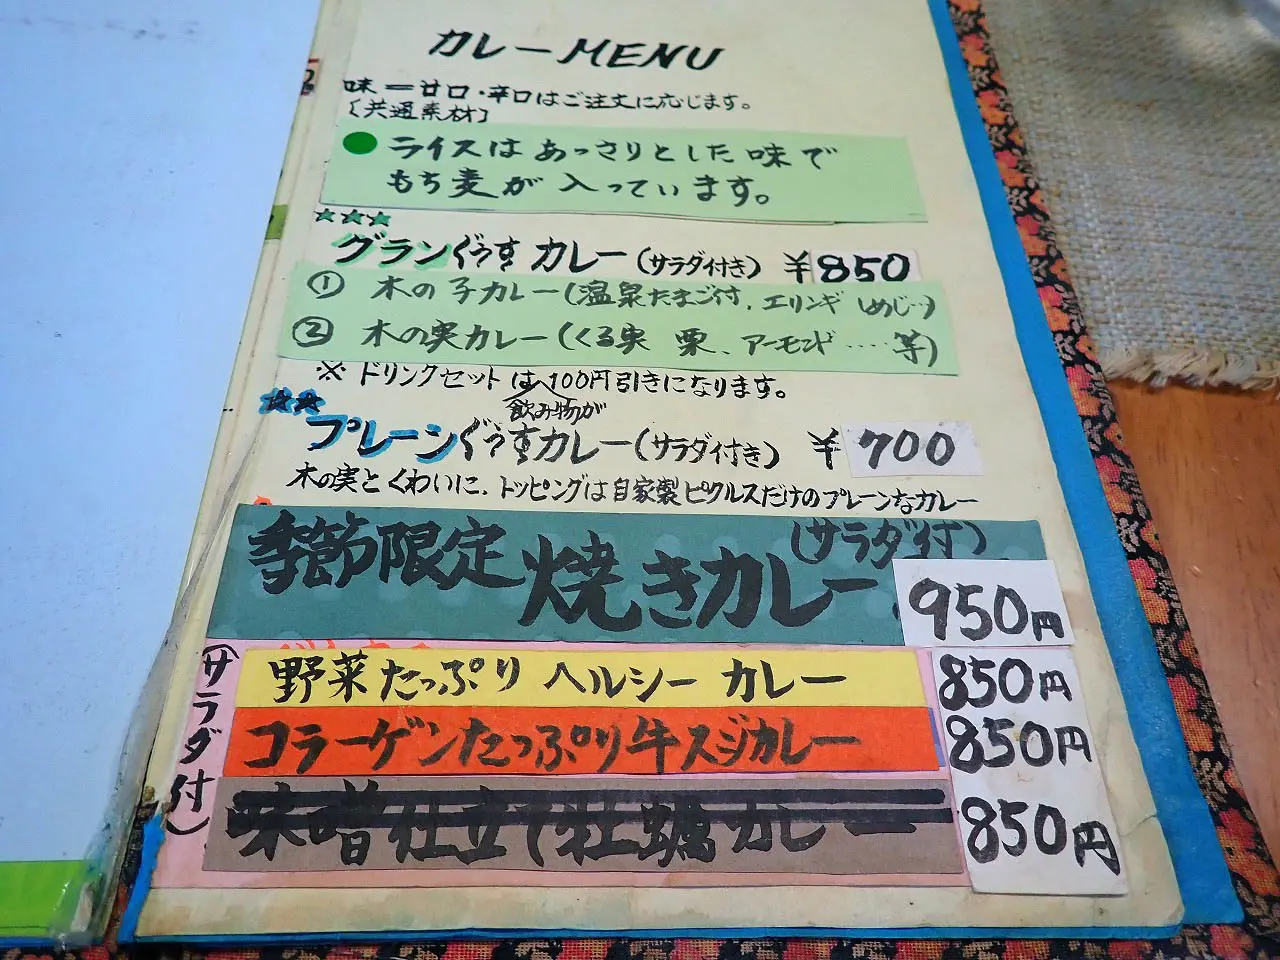 カレーMENU
味＝甘口・辛口はご注文に応じます。
〔共通素材〕
●ライスはあっさりとした味で
もち麦が入っています。
☆☆☆
グランぐうすカレー(サラダ付き) ￥850
① 木の子カレー(温泉たまご付、エリンギ しめじ…)
② 木の実カレー(くる実 栗、アーモンド……等)
※ ドリンクセットは飲み物が100円引きになります。
☆☆
プレーンぐうすカレー(サラダ付き) ￥700
木の実とくわいに、トッピングは自家製ピクルスだけのプレーンなカレー
季節限定 焼きカレー (サラダ付) 950円
(サラダ付)
野菜たっぷり ヘルシー カレー 850円
コラーゲンたっぷり牛スジカレー 850円
味噌仕立て牡蠣カレー 850円